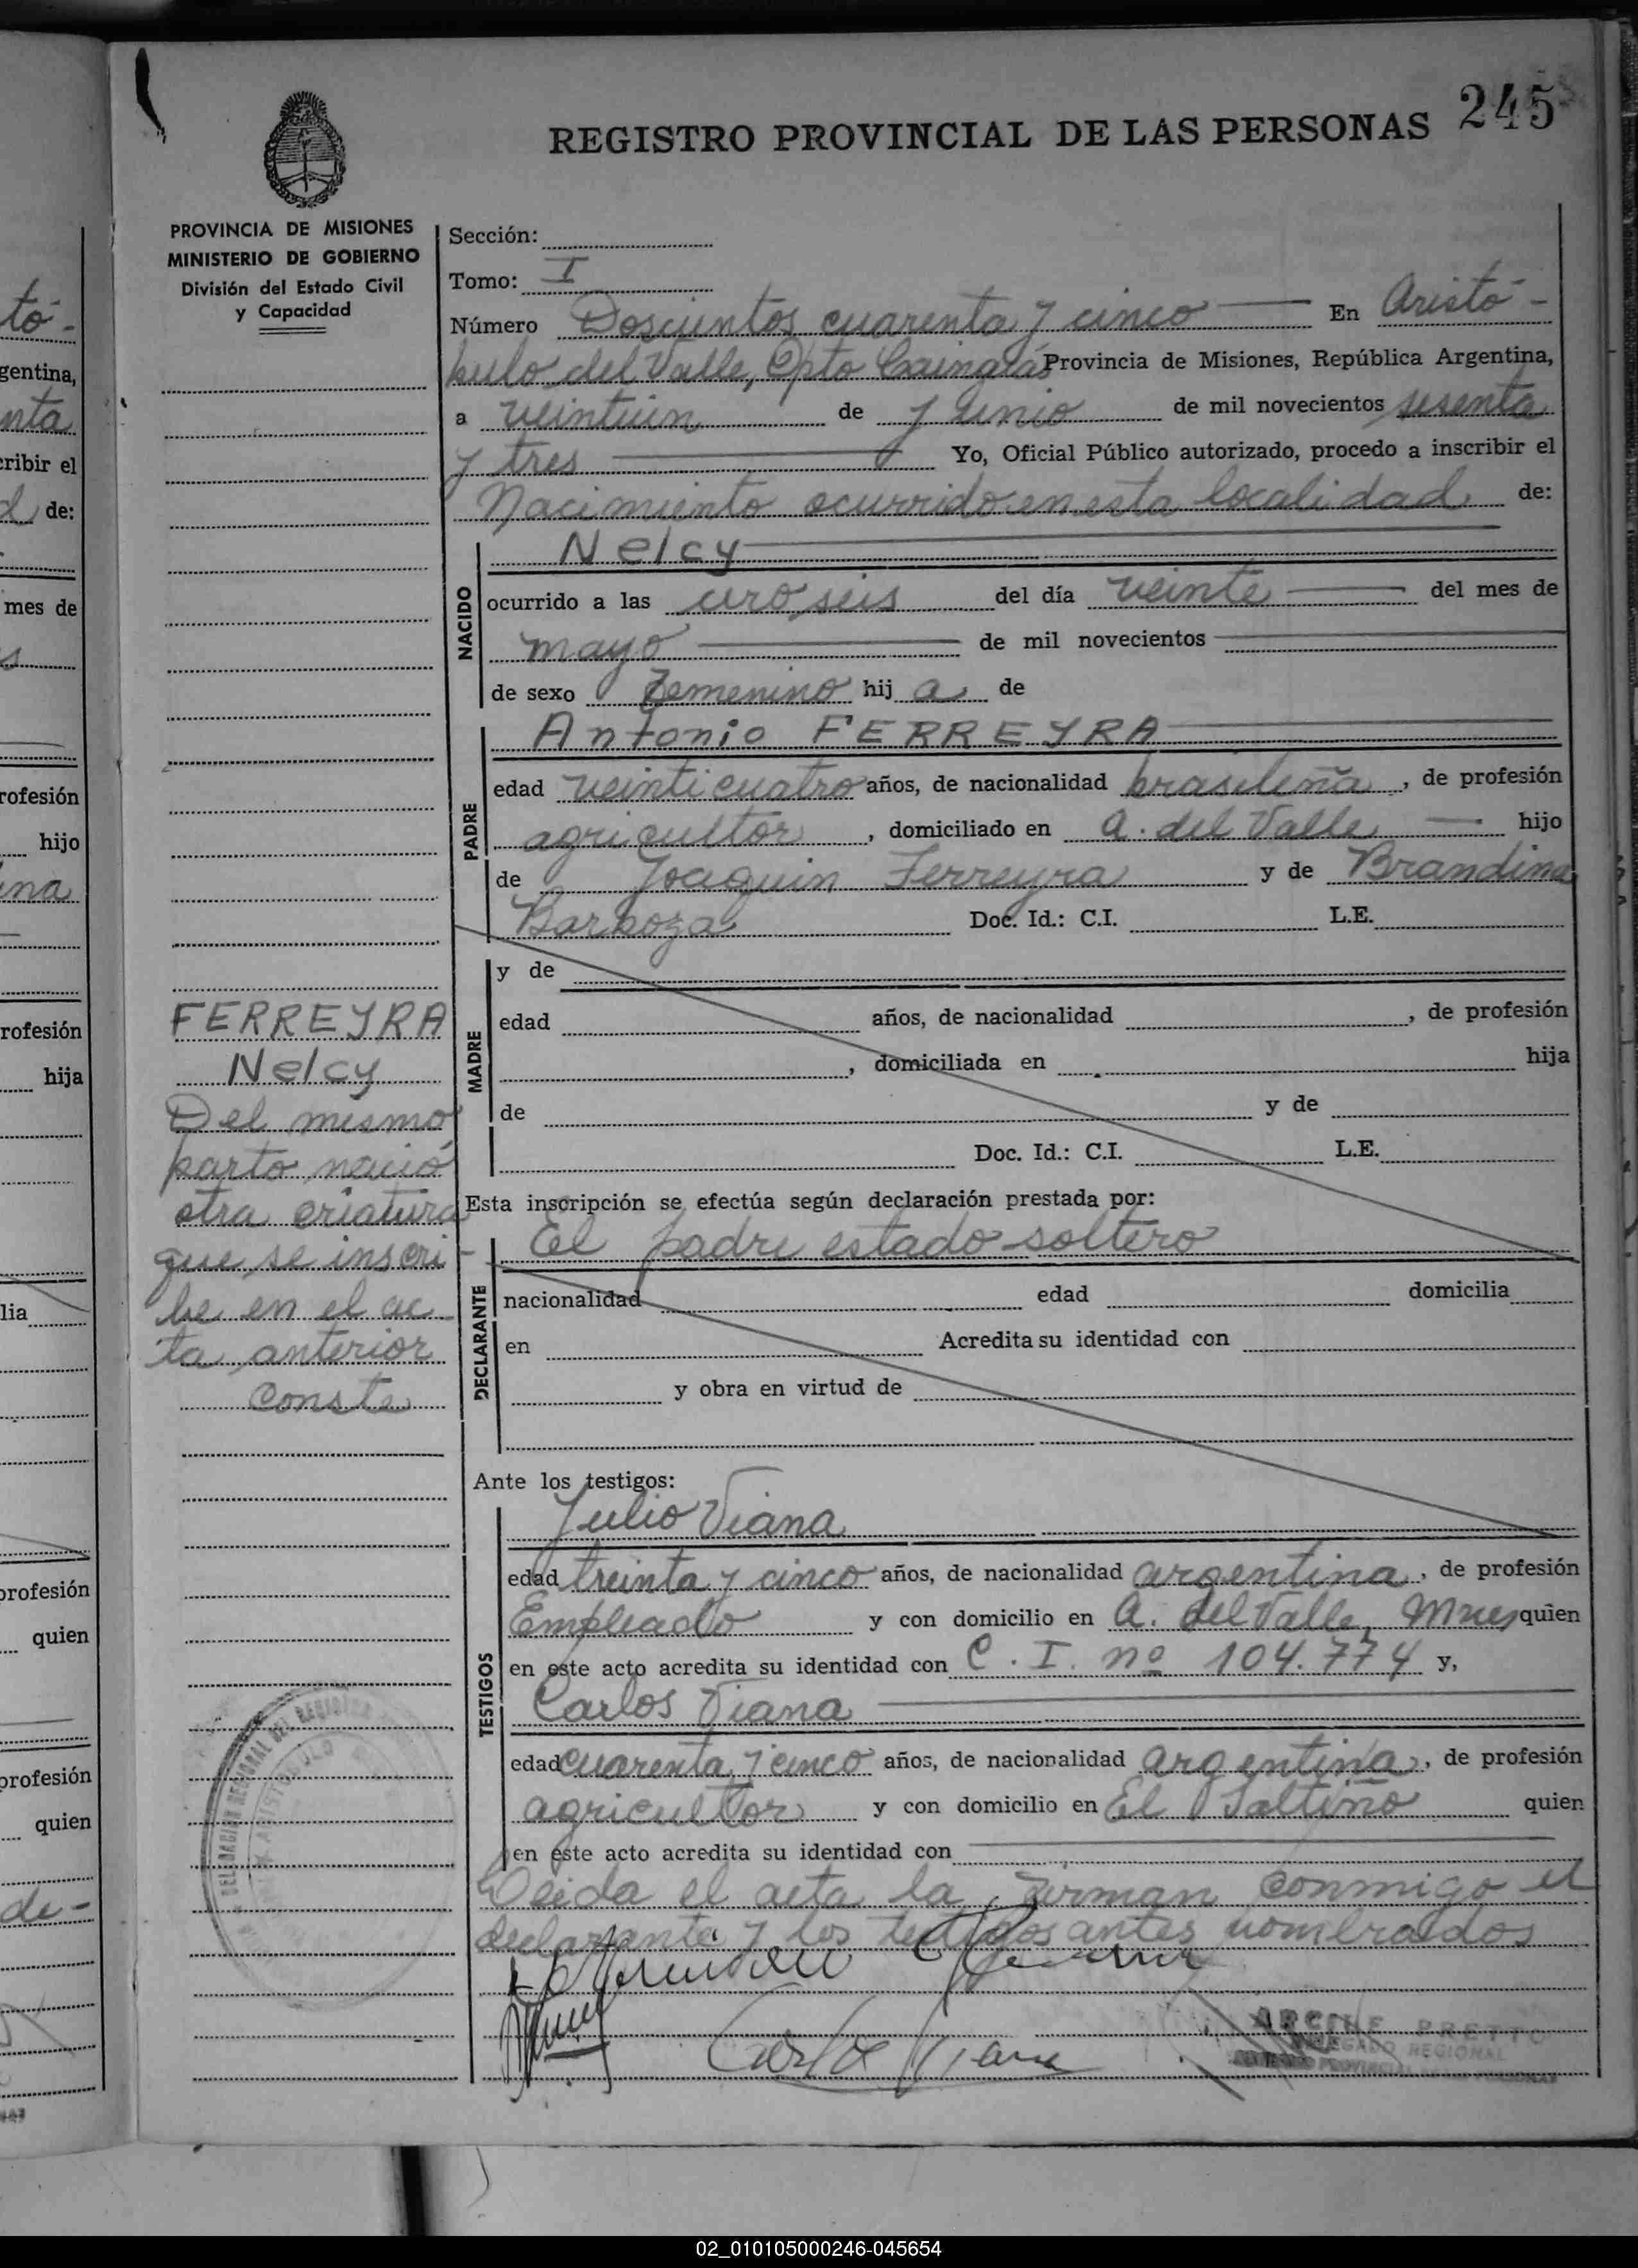 tó-
gentina,
nta
cribir el
d de:
mes de
s
rofesión
hijo
ina
rofesión
hija
lia
profesión
quien
profesión
quien
de-
245
REGISTRO PROVINCIAL DE LAS PERSONAS
PROVINCIA DE MISIONES
MINISTERIO DE GOBIERNO
División del Estado Civil
y Capacidad
Sección:
Tomo: I
Número Doscientos cuarenta y cinco En Aristó-
bulo del Valle, Dpto Cainguás Provincia de Misiones, República Argentina,
a veintiun de junio de mil novecientos sesenta
y tres Yo, Oficial Público autorizado, procedo a inscribir el
Nacimiento ocurrido en esta localidad de:
NACIDO
Nelcy
ocurrido a las cero seis del día veinte del mes de
mayo de mil novecientos
de sexo Femenino hij a de
PADRE
Antonio FERREYRA
edad veinticuatro años, de nacionalidad brasileña, de profesión
agricultor, domiciliado en A. del Valle hijo
de Joaquin Ferreyra y de Brandina
Barboza Doc. Id.: C.I. L.E.
MADRE
y de
edad años, de nacionalidad , de profesión
, domiciliada en hija
de y de
Doc. Id.: C.I. L.E.
FERREYRA
Nelcy
Del mismo
parto nació
otra criatura
que se inscri-
be en el ac-
ta anterior
conste
Esta inscripción se efectúa según declaración prestada por:
DECLARANTE
El padre estado soltero
nacionalidad edad domicilia
en Acredita su identidad con
y obra en virtud de
Ante los testigos:
TESTIGOS
Julio Viana
edad treinta y cinco años, de nacionalidad argentina, de profesión
Empleado y con domicilio en A. del Valle, Mnes, quien
en este acto acredita su identidad con C.I. nº 104.774 y,
Carlos Viana
edad cuarenta y cinco años, de nacionalidad argentina, de profesión
agricultor y con domicilio en El Saltiño quien
en este acto acredita su identidad con
Leida el acta la firman conmigo el
declarante y los testigos antes nombrados
Carlos Viana
DELEGACION REGIONAL DEL REGISTRO
ARISTOBULO
PRETTO
DELEGADO REGIONAL
02_010105000246-045654